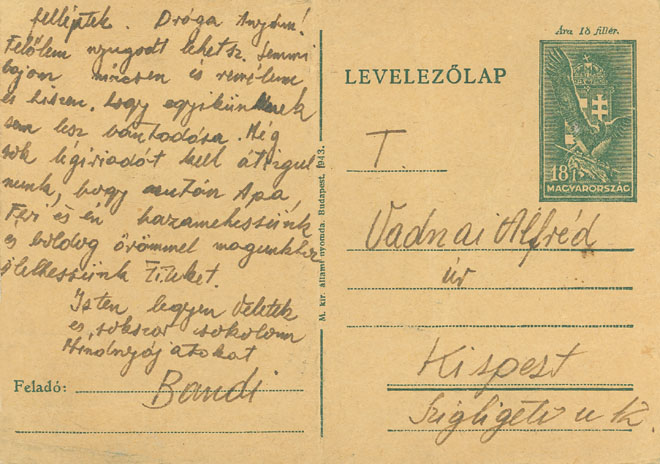 felléptek. Drága Anyám!
Felőlem nyugodt lehetsz. semmi
bajom nincsen és remélem
és hiszem, hogy egyikünknek
sem lesz bántódása. Még
sok légiriadót kell átizgul
nunk, hogy azután Apa,
Feri és én hazamehessünk
és boldog örömmel magunkhoz
ölelhessünk Titeket.
Isten legyen Veletek
és sokszor csókolom
Mindnyájatokat
Feladó: Bandi
M. kir. állami nyomda, Budapest, 1943.
Ára 18 fillér.
LEVELEZŐLAP
18 f
MAGYARORSZÁG
T.
Vadnai Alfréd
úr
Kispest
Szigligeti u